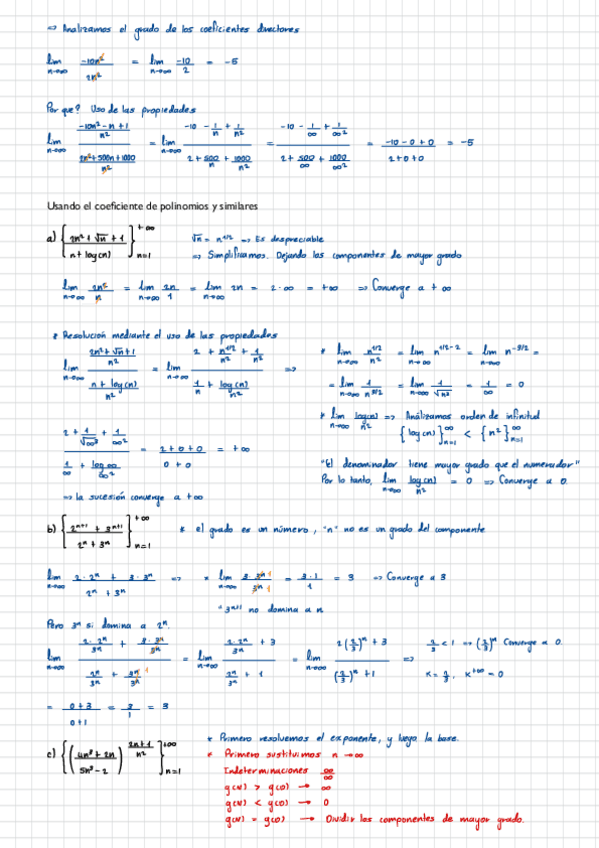 => Analizamos el grado de los coeficientes directores
lim n→∞ -10n² / 2n² = lim n→∞ -10 / 2 = -5
Por que? Uso de las propiedades
lim n→∞ ((-10n² - n + 1) / n²) / ((2n² + 500n + 1000) / n²) = lim n→∞ (-10 - 1/n + 1/n²) / (2 + 500/n + 1000/n²) = (-10 - 1/∞ + 1/∞²) / (2 + 500/∞ + 1000/∞²) = (-10 - 0 + 0) / (2 + 0 + 0) = -5
Usando el coeficiente de polinomios y similares
a) { (2n² + √n + 1) / (n + log(n)) }+∞ n=1
√n = n^1/2 => Es despreciable
=> Simplificamos. Dejando los componentes de mayor grado
lim n→∞ 2n² / n = lim n→∞ 2n / 1 = lim n→∞ 2n = 2·∞ = +∞ => Converge a +∞
* Resolución mediante el uso de las propiedades
lim n→∞ ((2n² + √n + 1) / n²) / ((n + log(n)) / n²) = lim n→∞ (2 + n^1/2 / n² + 1/n²) / (1/n + log(n)/n²) =>
* lim n→∞ n^1/2 / n² = lim n→∞ n^1/2-2 = lim n→∞ n^-3/2 =
= lim n→∞ 1 / n^3/2 = lim n→∞ 1 / √n³ = 1/∞ = 0
* lim n→∞ log(n) / n² => Análizamos orden de infinitud
{log(n)}∞ n=1 < {n²}∞ n=1
(2 + 1/√∞³ + 1/∞²) / (1/∞ + log∞/∞²) = (2 + 0 + 0) / (0 + 0) = +∞
"El denominador tiene mayor grado que el numerador"
Por lo tanto, lim n→∞ log(n) / n² = 0 => Converge a 0.
=> la sucesión converge a +∞
b) { (2^n+1 + 3^n+1) / (2^n + 3^n) }+∞ n=1
* el grado es un número, "n" no es un grado del componente
lim n→∞ (2·2^n + 3·3^n) / (2^n + 3^n) =>
* lim n→∞ 3·3^n 1 / 3^n 1 = 3·1 / 1 = 3 => Converge a 3
* 3^n+1 no domina a n
Pero 3^n si domina a 2^n.
lim n→∞ (2·2^n / 3^n + 3·3^n / 3^n) / (2^n / 3^n + 3^n / 3^n 1) = lim n→∞ (2·2^n / 3^n + 3) / (2^n / 3^n + 1) = lim n→∞ (2(2/3)^n + 3) / ((2/3)^n + 1) =>
2/3 < 1 => (2/3)^n Converge a 0.
x = 2/3, x^+∞ = 0
= (0 + 3) / (0 + 1) = 3/1 = 3
* Primero resolvemos el exponente, y luego la base.
c) { ((4n³ + 2n) / (5n³ - 2))^(2n+1 / n²) }+∞ n=1
* Primero sustituimos n → ∞
Indeterminaciones ∞/∞
g(N) > g(D) → ∞
g(N) < g(D) → 0
g(N) = g(D) → Dividir los componentes de mayor grado.